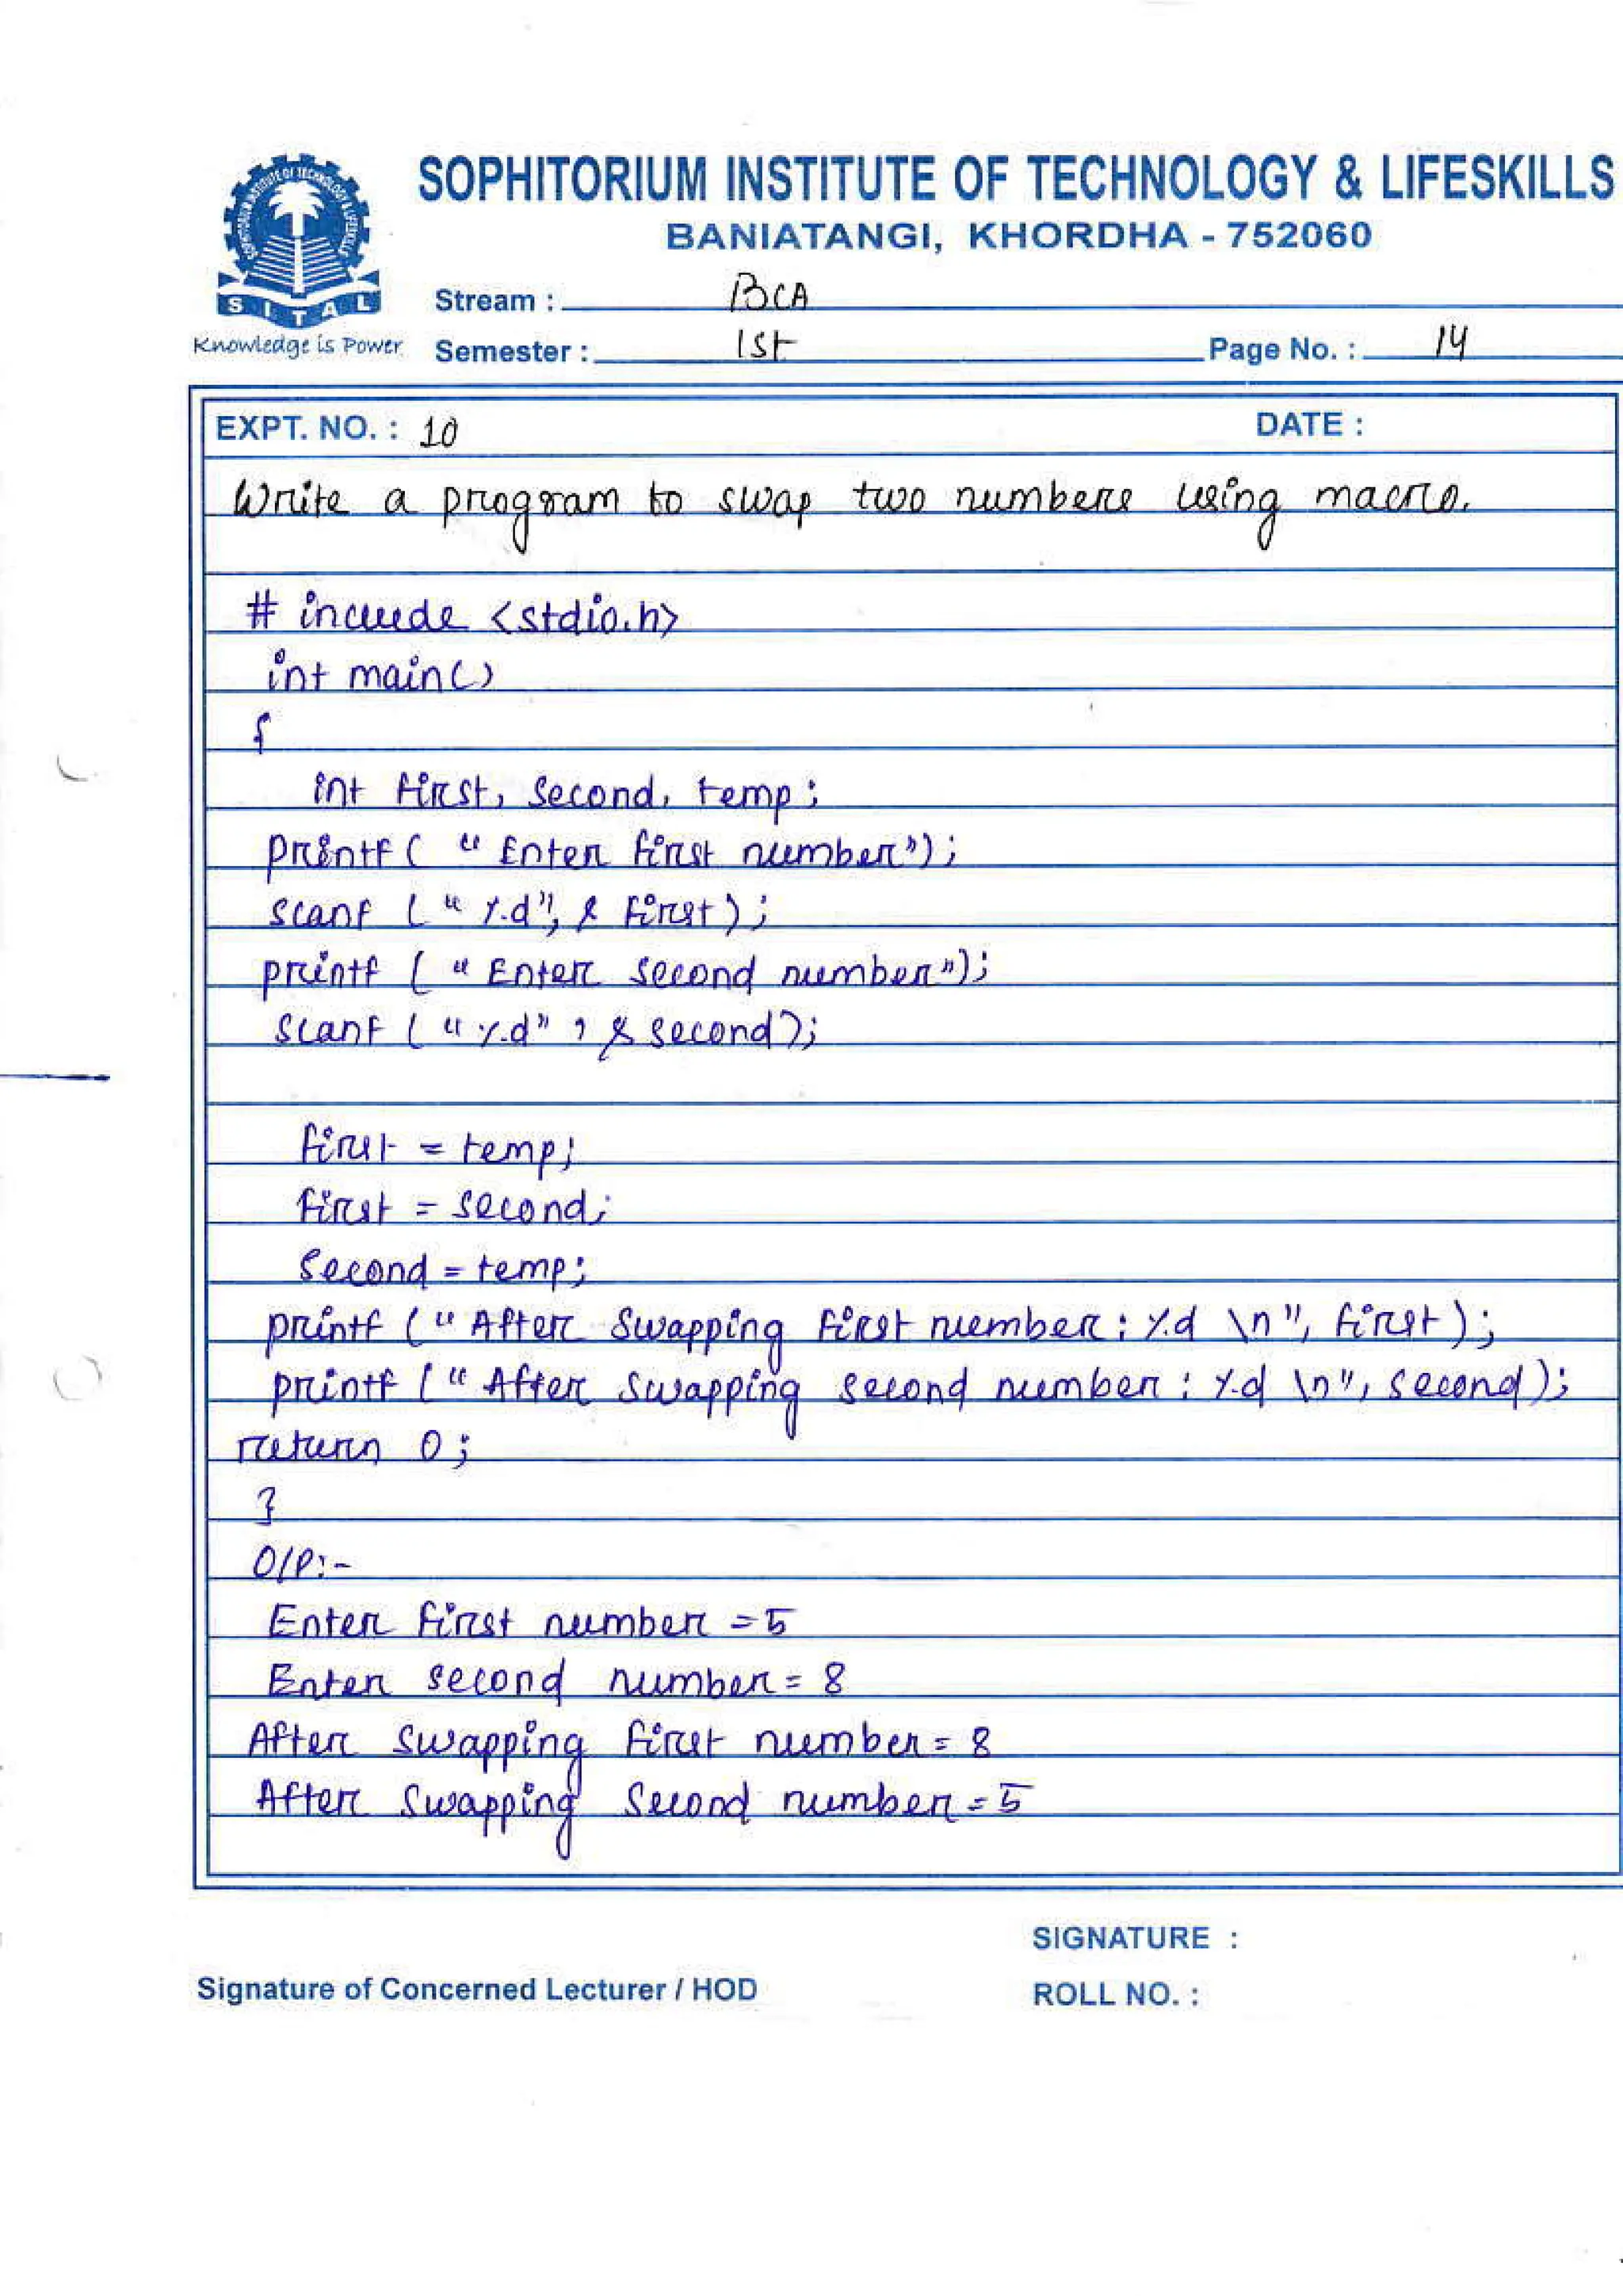 SOPHITORIUM INSTITUTE OF TECHNOLOGY & LIFESKILLS
BANIATANGI, KHORDHA - 752060
SOPHITORIUM INSTITUTE OF TECHNOLOGY & LIFESKILLS
SITAL
Knowledge is Power
Stream : BCA
Semester : 1st Page No. : 14
EXPT. NO. : 10 DATE :
Write a program to swap two numbers using macro.
# include <stdio.h>
int main()
{
int first, second, temp;
printf ( " Enter first number");
scanf ( " %d", & first);
printf ( " Enter second number");
scanf ( " %d" , & second);
first = temp;
first = second;
Second = temp;
printf ( " After Swapping first number : %d \n", first);
printf ( " After swapping second number : %d \n", second);
return 0;
}
O/P:-
Enter first number = 5
Enter second number = 8
After swapping first number = 8
After swapping Second number = 5
SIGNATURE :
Signature of Concerned Lecturer / HOD
ROLL NO. :